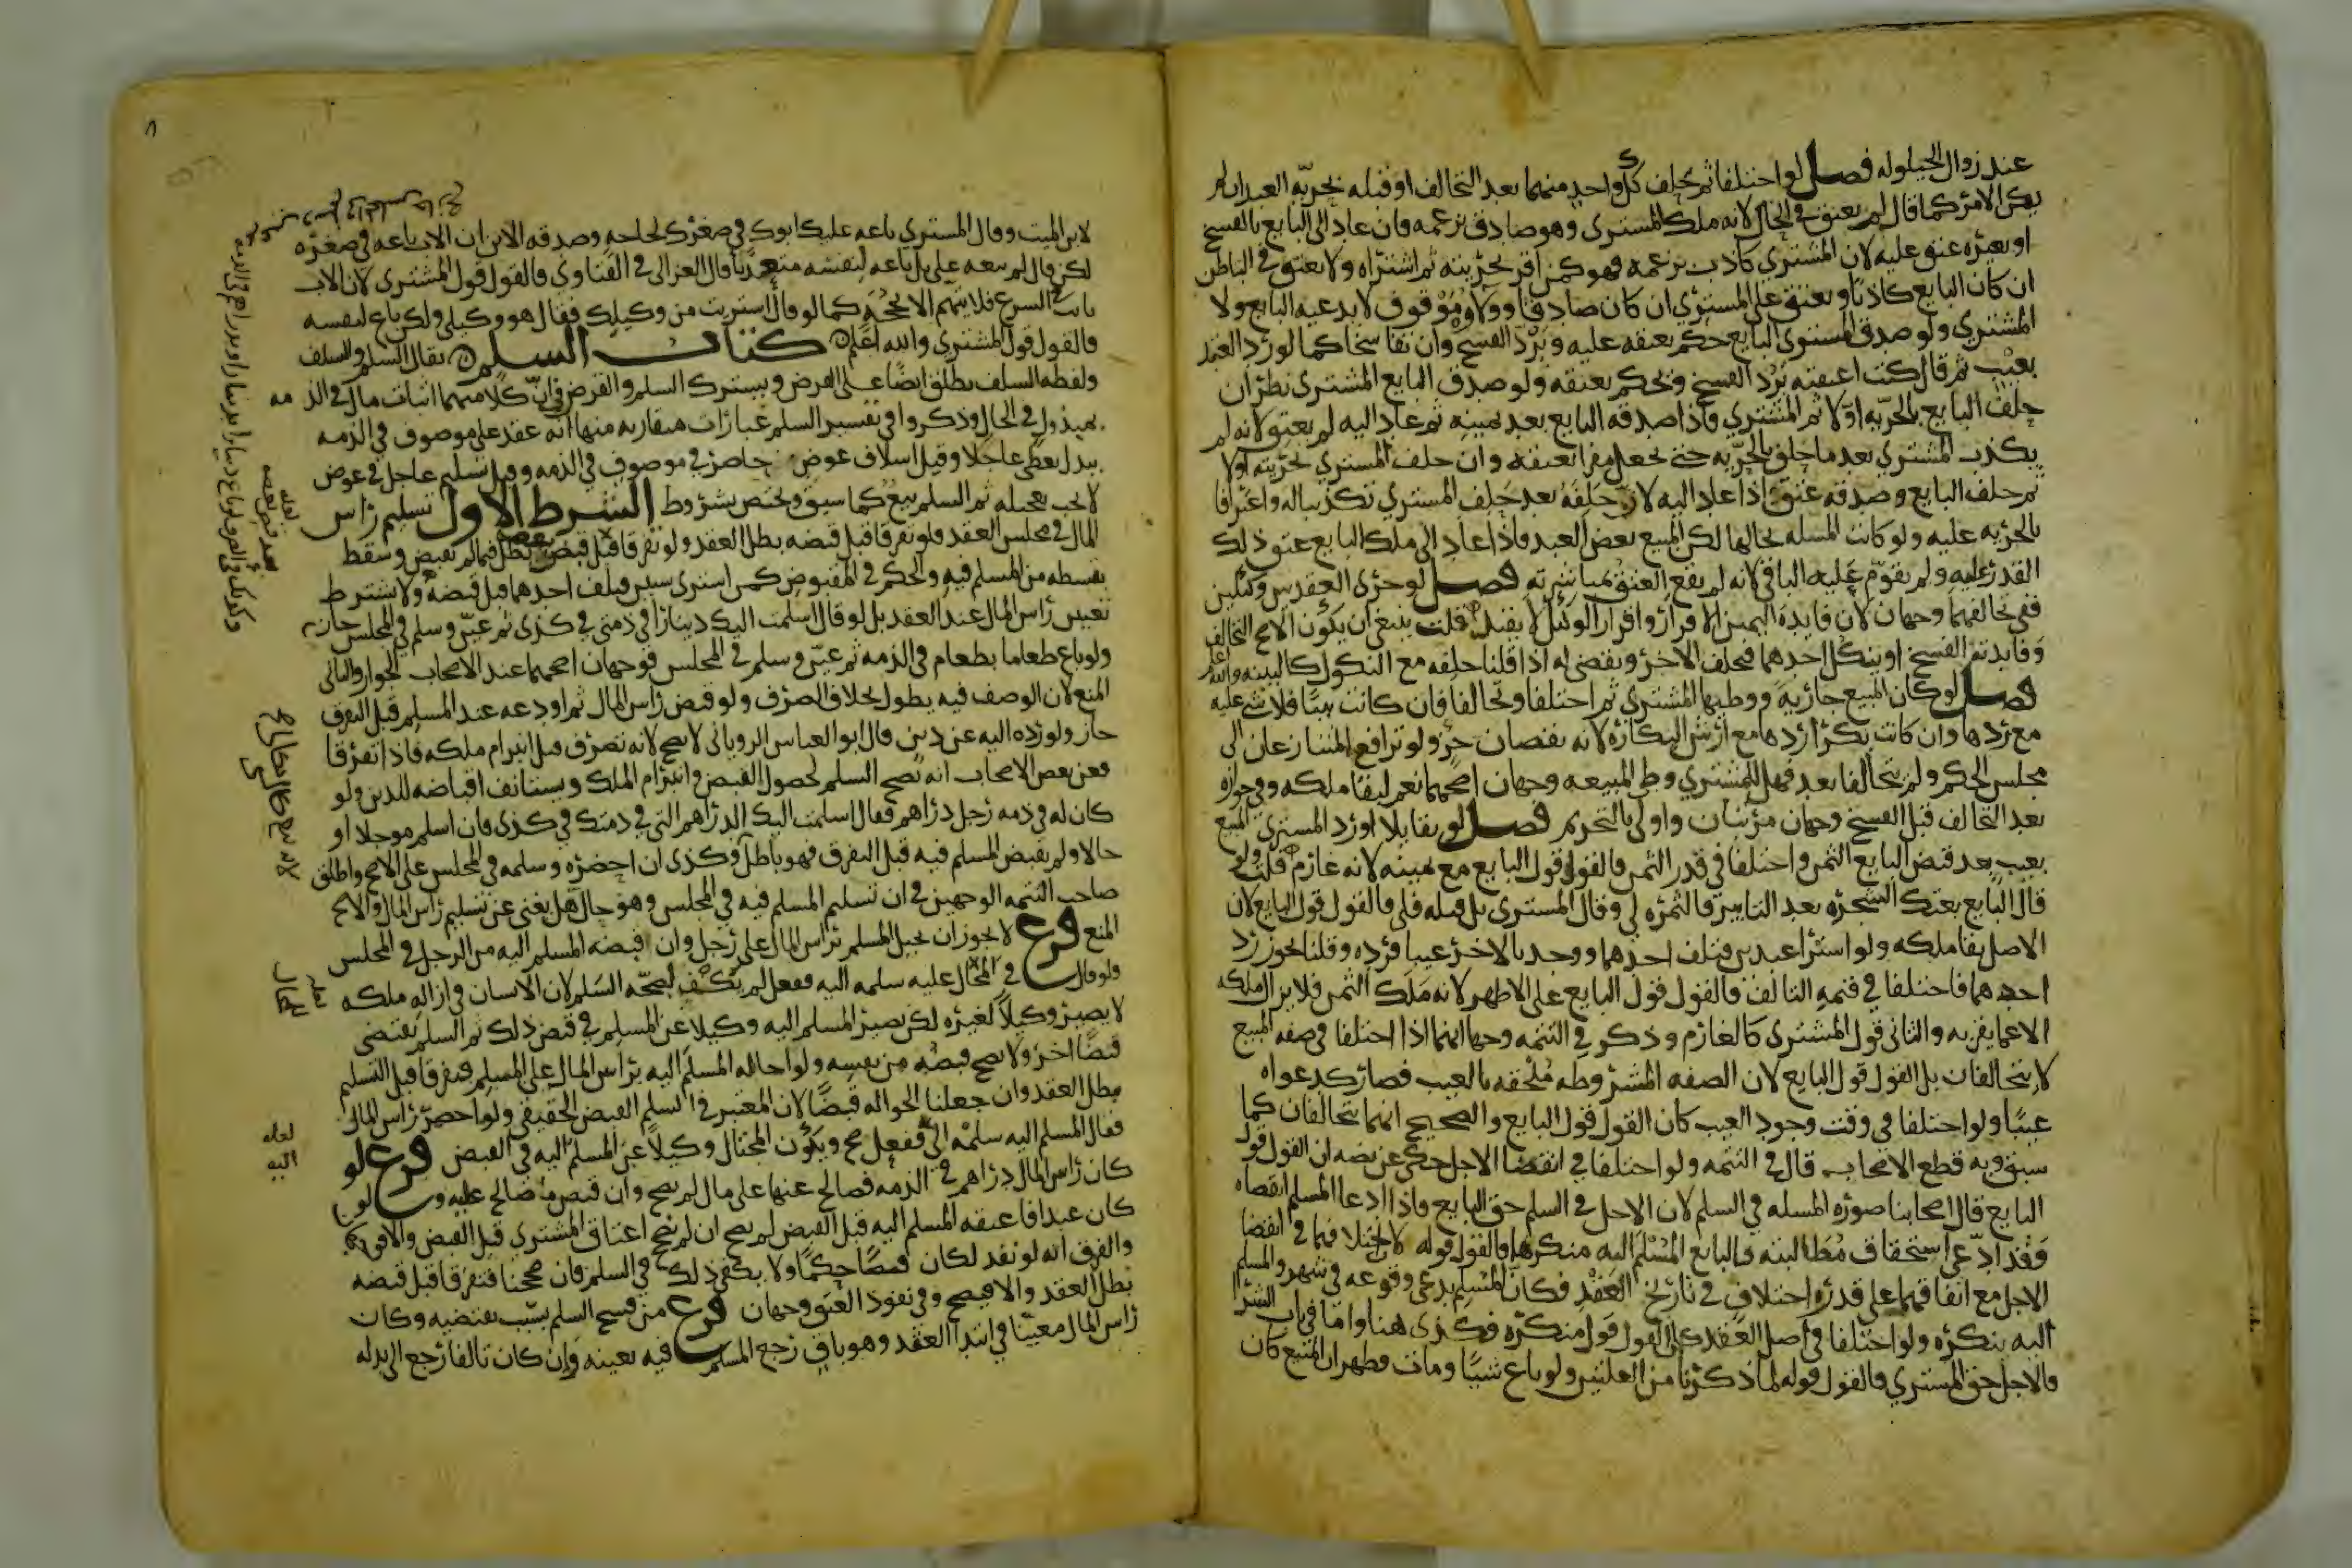 عند زوال الحيلوله فصل لو اختلفا ثم حلف كل واحد منهما بعد التحالف او قبله بحريه العبد ان لم
يكن الامر كما قال لم يعتق في الحال لانه ملك المشتري وهو صادق بزعمه فان عاد الى البايع بالفسخ
او بغيره عتق عليه لان المشتري كاذب بزعمه فهو كمن اقر بحريته ثم اشتراه ولا يعتق في الباطن
ان كان البايع كاذبا ويعتق على المشتري ان كان صادقا وولاوه موقوف لا يدعيه البايع ولا
المشتري ولو صدق المشتري البايع حكم بعتقه عليه ويرد الفسخ وان تفاسخا كما لو رد العبد
بعيب ثم قال كنت اعتقته يرد الفسخ ويحكم بعتقه ولو صدق البايع المشتري نظر ان
حلف البايع بالحريه اولا ثم المشتري فاذا صدقه البايع بعد يمينه ثم عاد اليه لم يعتق لانه لم
يكذب المشتري بعد ما حلف بالحريه حتى يجعل مقرا بعتقه وان حلف المشتري بحريته اولا
ثم حلف البايع وصدقه عتق اذا عاد اليه لان حلفه بعد حلف المشتري تكذيبا له واعترافا
بالحريه عليه ولو كانت المسله بحالها لكن المبيع بعض العبد فاذا عاد الى ملك البايع عتق ذلك
القدر عليه ولم يقوم عليه الباقي لانه لم يقع العتق بمباشرته فصل لو جرى العقد بين وكيلين
ففي تحالفهما وجهان لان فايدة اليمين الاقرار واقرار الوكيل لا يقبل قلت ينبغي ان يكون الاصح التحالف
وفايدته الفسخ او ينكل احدهما فيحلف الاخر ويقضى له اذا قلنا حلفه مع النكول كالبينه والله اعلم
فصل لو كان المبيع جاريه ووطيها المشتري ثم اختلفا وتحالفا فان كانت ثيبا فلا شي عليه
مع ردها وان كانت بكرا ردها مع ارش البكاره لانه نقصان جزو ولو ترافع المتنازعان الى
مجلس الحكم ولم يتحالفا بعد فهل للمشتري وطي المبيعه وجهان اصحهما نعم لبقا ملكه وفي جوازه
بعد التحالف قبل الفسخ وجهان مرتبان واولى بالتحريم فصل لو تقايلا او رد المشتري المبيع
بعيب بعد قبض البايع الثمن واختلفا في قدر الثمن فالقول قول البايع مع يمينه لانه غارم قلت ولو
قال البايع بعتك الشجره بعد التابير فالثمره لي وقال المشتري بل قبله فلي فالقول قول البايع لان
الاصل بقا ملكه ولو اشترا عبدين فتلف احدهما ووجد بالاخر عيبا فرده وقلنا يجوز رد
احدهما فاختلفا في قيمة التالف فالقول قول البايع على الاظهر لانه ملك الثمن فلا يزال ملكه
الا عما يقر به والثاني قول المشتري كالغارم وذكر في التتمه وجها انهما اذا اختلفا في صفه المبيع
لا يتحالفان بل القول قول البايع لان الصفه المشروطه ملحقه بالعيب فصار كدعواه
عيبا ولو اختلفا في وقت وجود العيب كان القول قول البايع والصحيح انهما يتحالفان كما
سبق وبه قطع الاصحاب قال في التتمه ولو اختلفا في انقضا الاجل حكي عن نصه ان القول قول
البايع قال اصحابنا صورة المسله في السلم لان الاجل في السلم حق البايع فاذا ادعا المسلم انقضاه
وقد ادعى استحقاق مطالبته فالبايع المسلم اليه منكرها فالقول قوله لان اختلافهما في انقضا
الاجل مع اتفاقهما على قدره اختلاف في تاريخ العقد فكان المسلم يدعي وقوعه في شهر والمسلم
اليه ينكره ولو اختلفا في اصل العقد كان القول قول منكره فكذى هنا واما في باب الشرا
فالاجل حق المشتري فالقول قوله لما ذكرنا من العلتين ولو باع شيئا ومات فظهر ان المبيع كان
لابن الميت وقال المشتري باعه عليك ابوك في صغرك لحاجه وصدقه الابن ان الاب باعه في صغره
لكن قال لم يبعه علي بل باعه لنفسه متعديا قال الغزالي في الفتاوي فالقول قول المشتري لان الاب
نايب الشرع فلا يتهم الا بحجه كما لو قال اشتريت من وكيلك فقال هو وكيلي ولكن باع لنفسه
فالقول قول المشتري والله اعلم كتاب السلم يقال السلم والسلف
ولفظه السلف يطلق ايضا على القرض ويشترك السلم والقرض في ان كلا منهما اثبات مال في الذمه
بمبذول في الحال وذكروا في تفسير السلم عبارات متقاربه منها انه عقد على موصوف في الذمه
ببدل يعطى عاجلا وقيل اسلاف عوض حاضر في موصوف في الذمه وقيل تسليم عاجل في عوض
لا يجب تعجيله ثم السلم بيع كما سبق ويختص بشروط الشرط الاول تسليم راس
المال في مجلس العقد فلو تفرقا قبل قبضه بطل العقد ولو تفرقا قبل قبض بعضه بطل فيما لم يقبض وسقط
بقسطه من المسلم فيه والحكم في المقبوض كمن اشترى شيين فتلف احدهما قبل قبضه ولا يشترط
تعيين راس المال عند العقد بل لو قال اسلمت اليك دينارا في ذمتي في كذى ثم عين وسلم في المجلس جاز
ولو باع طعاما بطعام في الذمه ثم عين وسلم في المجلس فوجهان اصحهما عند الاصحاب الجواز والثاني
المنع لان الوصف فيه يطول بخلاف الصرف ولو قبض راس المال ثم اودعه عند المسلم قبل التفرق
جاز ولو رده اليه عن دين قال ابو العباس الروياني لا يصح لانه تصرف قبل انبرام ملكه فاذا تفرقا
فعن بعض الاصحاب انه يصح السلم لحصول القبض وانبرام الملك ويستانف اقباضه للدين ولو
كان له في ذمه رجل دراهم فقال اسلمت اليك الدراهم التي في ذمتك في كذى فان اسلم موجلا او
حالا ولم يقبض المسلم فيه قبل التفرق فهو باطل وكذى ان احضره وسلمه في المجلس على الاصح واطلق
صاحب التتمه الوجهين في ان تسليم المسلم فيه في المجلس وهو حال هل يغني عن تسليم راس المال والاصح
المنع فرع لا يجوز ان يحيل المسلم براس المال على رجل وان قبضه المسلم اليه من الرجل في المجلس
ولو قال في المحال عليه سلمه اليه ففعل لم يكف لصحة السلم لان الانسان في ازالة ملكه
لا يصير وكيلا لغيره لكن يصير المسلم اليه وكيلا عن المسلم في قبض ذلك ثم السلم يقتضي
قبضا اخر ولا يصح قبضه من نفسه ولو احاله المسلم اليه براس المال على المسلم فتفرقا قبل التسليم
بطل العقد وان جعلنا الحواله قبضا لان المعتبر في السلم القبض الحقيقي ولو احضر راس المال
فقال المسلم اليه سلمه الي ففعل صح ويكون المحتال وكيلا عن المسلم اليه في القبض فرع لو
كان راس المال دراهم في الذمه فصالح عنها على مال لم يصح وان قبض ما صالح عليه ولو
كان عبدا فاعتقه المسلم اليه قبل القبض لم يصح ان لم نصحح اعتاق المشتري قبل القبض والا فوجهان
والفرق انه لو نفذ لكان قبضا حكما ولا يكفي ذلك في السلم فان صححنا فتفرقا قبل قبضه
بطل العقد والا فيصح وفي نفوذ العتق وجهان فرع متى فسخ السلم بسبب يقتضيه وكان
راس المال معينا في ابتدا العقد وهو باق رجع المسلم فيه بعينه وان كان تالفا رجع الى بدله
لعله
اليه